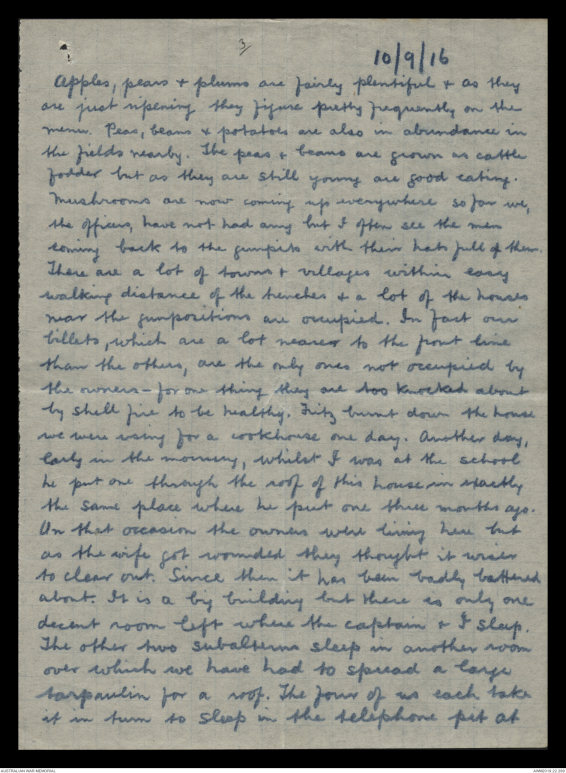 3/
10/9/16
Apples, pears + plums are fairly plentiful + as they
are just ripening they figure pretty frequently on the
menu. Peas, beans + potatoes are also in abundance in
the fields nearby. The peas + beans are grown as cattle
fodder but as they are still young are good eating.
Mushrooms are now coming up everywhere so far we,
the officers, have not had any but I often see the men
coming back to the gunpits with their hats full of them.
There are a lot of towns + villages within easy
walking distance of the trenches + a lot of the houses
near the gunpositions are occupied. In fact our
billets, which are a lot nearer to the front line
than the others, are the only ones not occupied by
the owners - for one thing they are too knocked about
by shell fire to be healthy. Fritz burnt down the house
we were using for a cookhouse one day. Another day,
early in the morning, whilst I was at the school
he put one through the roof of this house in exactly
the same place where he put one three months ago.
On that occasion the owners were living here but
as the wife got wounded they thought it wiser
to clear out. Since then it has been badly battered
about. It is a big building but there is only one
decent room left where the captain + I sleep.
The other two subalterns sleep in another room
over which we have had to spread a large
tarpaulin for a roof. The four of us each take
it in turn to sleep in the telephone pit at
AUSTRALIAN WAR MEMORIAL